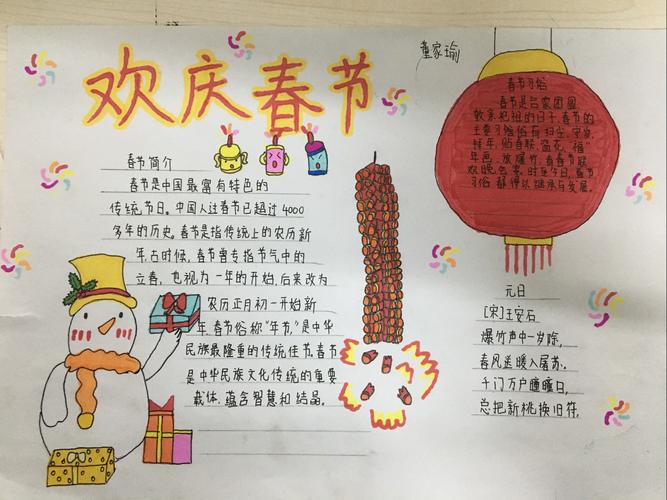 欢庆春节
董家瑜
春节简介
春节是中国最富有特色的
传统节日。中国人过春节已超过4000
多年的历史。春节是指传统上的农历新
年。古时候，春节曾专指节气中的
立春，也视为一年的开始，后来改为
农历正月初一开始新
年，春节俗称“年节”，是中华
民族最隆重的传统佳节。春节
是中华民族文化传统的重要
载体，蕴含智慧和结晶。
春节习俗
春节是合家团圆
敦亲祀祖的日子，春节的
主要习俗俗有扫尘、守岁、
拜年、贴春联、窗花、“福”
年画、放爆竹、看春节联
欢晚会等。时至今日，春节
习俗都得以继承与发展。
元日
[宋]王安石
爆竹声中一岁除，
春风送暖入屠苏。
千门万户曈曈日，
总把新桃换旧符。